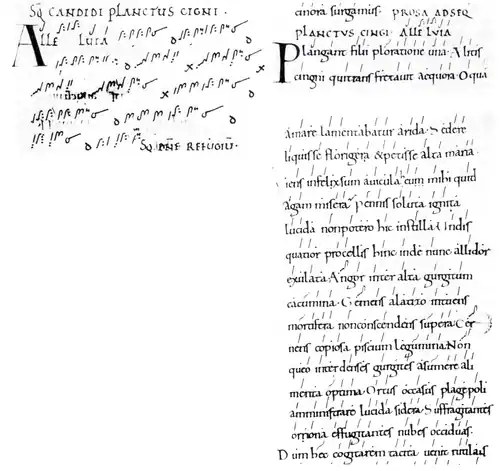 SQ CANDIDI PLANCTUS CIGNI.
ALLE LUIA
SQ DNE REFUGIU.
canora sungamus. PROSA AD SEQ
PLANCTUS CINGI. ALLE LUIA
Plangant filii ploratione una Alitis
cingni qui trans fretavit aequora O qua
amare lamentabatur arida. Sedere
liquisse florigera & petisse alta maria.
iens infelix sum avicula cum mihi quid
agam misera Pennis soluta ignita
lucida non potero hic instilla Undis
quatior procellis hinc inde nunc allidor
exulata. Angor inter alta gurgitum
cacumina. Gemens alatizo intuens
mortifera non conscendens supera. Cer
nens copiosa piscium legumina Non
queo in denses gurgites asumere ali
menta optima. Ortus occasus plage poli
amministrare lucida sidera. Suffragitantes
oriona effugitantes nubes occiduas.
Dum hec cogitarem tacita venit rutilais